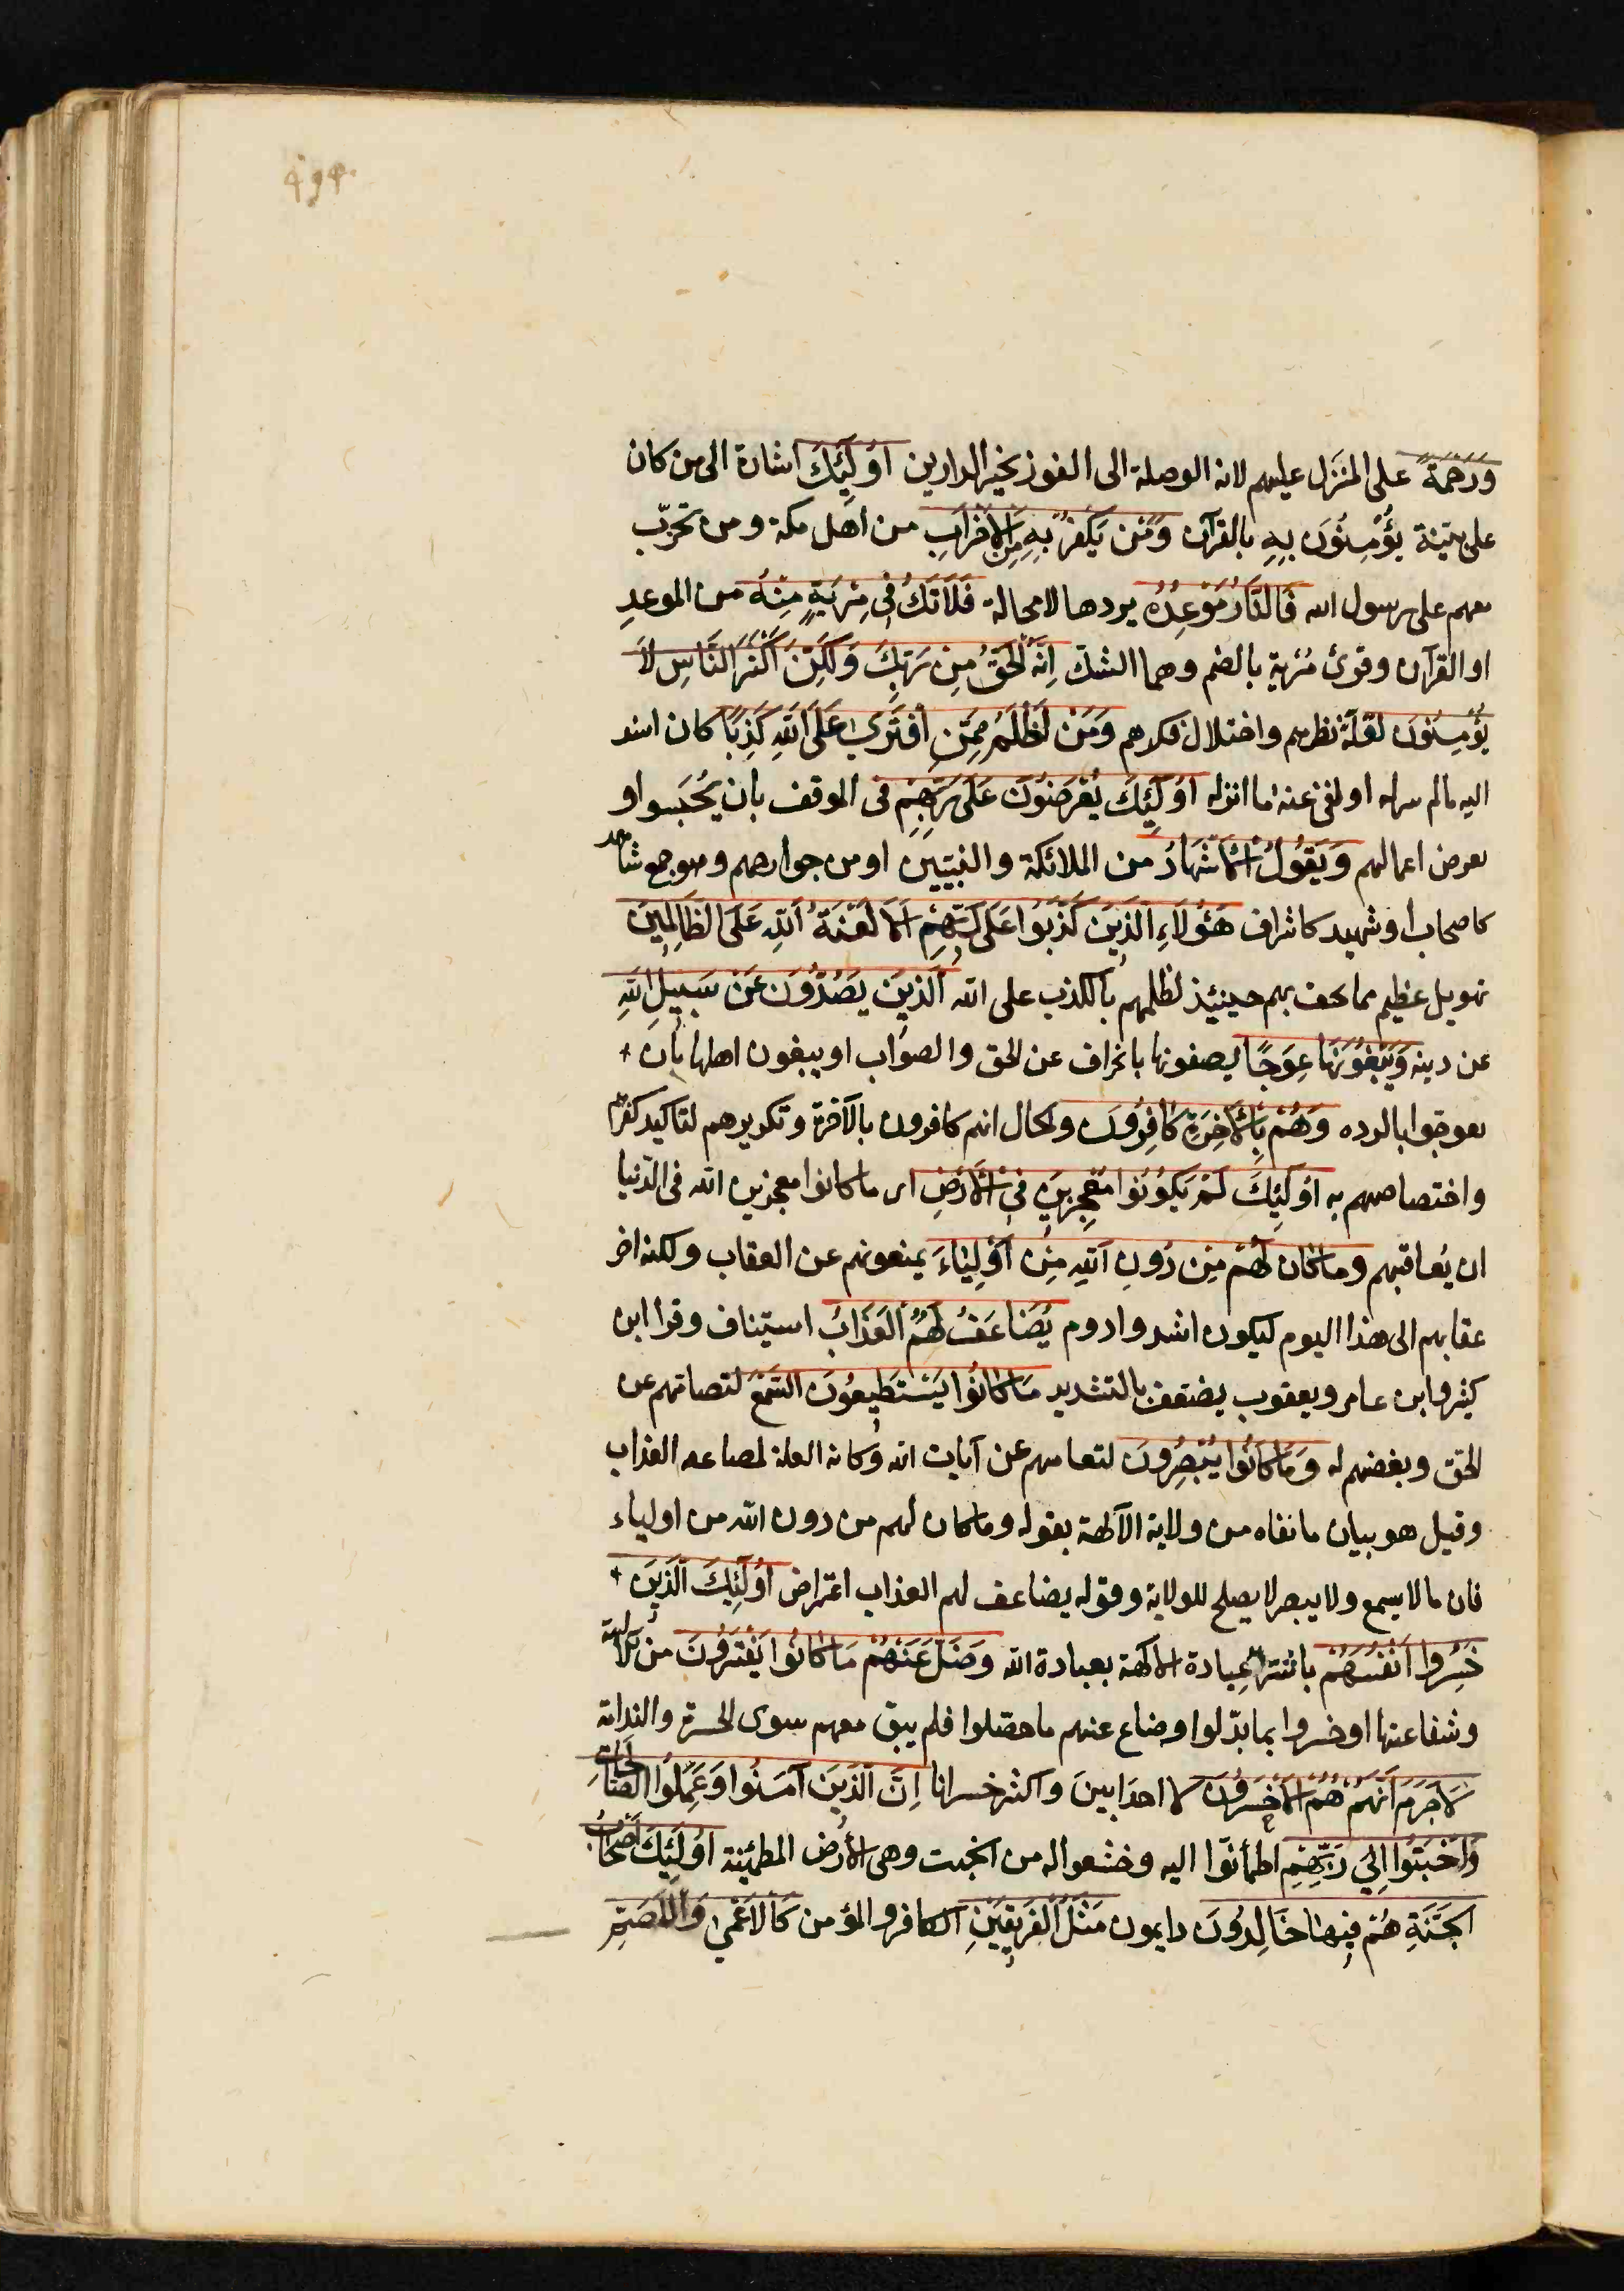 وَرَحْمَةً على المنزَل عليهم لانه الوصلة الى الفوز بخير الدارين اُولَٓئِكَ اشارة الى من كان
على بينة يُؤْمِنُونَ بِهِ بالقرآن وَمَنْ يَكْفُرْ بِهِ مِنَ الْاَحْزَابِ من اهل مكة ومن تحزّب
معهم على رسول الله فَالنَّارُ مَوْعِدُهُ يردها لا محالة فَلَا تَكُ فِي مِرْيَةٍ مِنْهُ من الموعدِ
او القرآن وقرئ مُرْية بالضم وهما الشك اِنَّهُ الْحَقُّ مِنْ رَبِّكَ وَلَكِنَّ اَكْثَرَ النَّاسِ لَا
يُؤْمِنُونَ لقلّة نظرهم واختلال فكرهم وَمَنْ اَظْلَمُ مِمَّنِ افْتَرَى عَلَى اللّهِ كَذِبًا كان اسند
اليه مالم ينزله او نفى عنه ما انزله اُولَٓئِكَ يُعْرَضُونَ عَلَى رَبِّهِمْ فى الموقف بان يُحْبَسوا و
تعرض اعمالهم وَيَقُولُ الْاَشْهَادُ من الملائكة والنبيّين او من جوارحهم وهو جمع شاهد
كاصحاب او شهيد كاشراف هَؤُلَاءِ الَّذِينَ كَذَبُوا عَلَى رَبِّهِمْ اَلَا لَعْنَةُ اللّهِ عَلَى الظَّالِمِينَ
تهويل عظيم مما يحيق بهم حينئذ لظلمهم بالكذب على الله اَلَّذِينَ يَصُدُّونَ عَنْ سَبِيلِ اللّهِ
عن دينه وَيَبْغُونَهَا عِوَجًا يصفونها بانحراف عن الحق والصواب او يبغون اهلها بان
يعوجّوا بالردة وَهُمْ بِالْاٰخِرَةِ كَافِرُونَ والحال انهم كافرون بالآخرة وتكريرهم لتاكيد كفرهم
واختصاصهم به اُولَئِكَ لَمْ يَكُونُوا مُعْجِزِينَ فِي الْاَرْضِ اى ما كانوا معجزين الله فى الدّنيا
ان يُعاقبهم وما كان لَهُمْ مِنْ دُونِ اللّهِ مِنْ اَوْلِيَاءَ يمنعونهم عن العقاب ولكنه اخر
عقابهم الى هذا اليوم ليكون اشد وادوم يُضَاعَفُ لَهُمُ الْعَذَابُ استيناف وقرا ابن
كثير وابن عامر ويعقوب يضعّف بالتشديد مَا كَانُوا يَسْتَطِيعُونَ السَّمْعَ لتصامّهم عن
الحق وبغضهم له وَمَا كَانُوا يُبْصِرُونَ لتعاميهم عن آيات الله وكانه العلة لمضاعفة العذاب
وقيل هو بيان ما نفاه من ولاية الآلهة بقوله وما كان لهم من دون الله من اولياء
فان ما لا يسمع ولا يبصر لا يصلح للولاية وقوله يضاعف لهم العذاب اعتراض اُولَئِكَ الَّذِينَ
خَسِرُوا اَنْفُسَهُمْ باشتراء عبادة الالهة بعبادة الله وَضَلَّ عَنْهُمْ مَا كَانُوا يَفْتَرُونَ من الآلهة
وشفاعتها او خسروا بما بدّلوا وضاع عنهم ما حصّلوا فلم يبق معهم سوى الحسرة والندامة
لَا جَرَمَ اَنَّهُمْ هُمُ الْاَخْسَرُونَ لا احد ابين واكثر خسرانا اِنَّ الَّذِينَ آمَنُوا وَعَمِلُوا الصَّالِحَاتِ
وَاَخْبَتُوا اِلَى رَبِّهِمْ اطمأنوّا اليه وخشعوا له من الخبت وهى الارض المطمئنة اُولَئِكَ اَصْحَابُ
الْجَنَّةِ هُمْ فِيهَا خَالِدُونَ دايمون مَثَلُ الْفَرِيقَيْنِ الكافر والمؤمن كَالْاَعْمَى وَالْاَصَمِّ